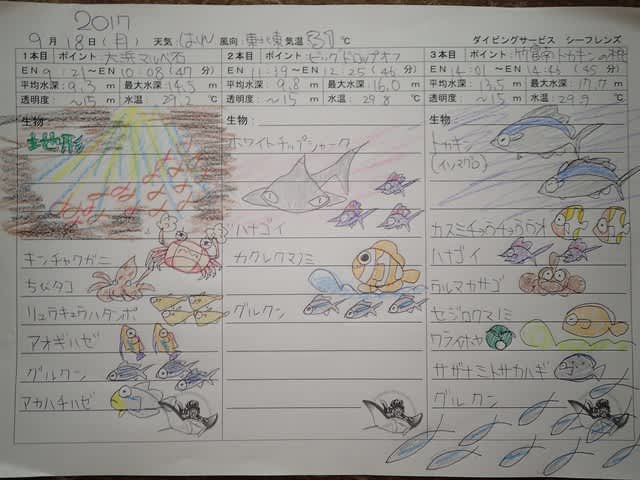 2017
9月18日(月) 天気 はれ 風向 東北東 気温 31℃ ダイビングサービス シーフレンズ
1本目 ポイント:大浜マルベ石
EN 9:21〜EN 10:08(47分)
平均水深:9.3m 最大水深:14.5m
透明度:〜15m 水温:29.2℃
生物:
地形
キンチャクガニ
ちびタコ
リュウキュウハタンポ
アオギハゼ
グルクン
アカハチハゼ
2本目 ポイント:ビッグドロップオフ
EN 11:39〜EN 12:25(46分)
平均水深:9.8m 最大水深:16.0m
透明度:〜15m 水温:29.8℃
生物:
ホワイトチップシャーク
ハナゴイ
カクレクマノミ
グルクン
3本目 ポイント:竹富南トカキンの根
EN 14:01〜EN 14:43(45分)
平均水深:13.5m 最大水深:17.7m
透明度:〜15m 水温:29.9℃
生物:
トカキン
(イソマグロ)
カスミチョウチョウウオ
ハナゴイ
ウルマカサゴ
セジロクマノミ
ワライボヤ
サザナミトサカハギ
グルクン